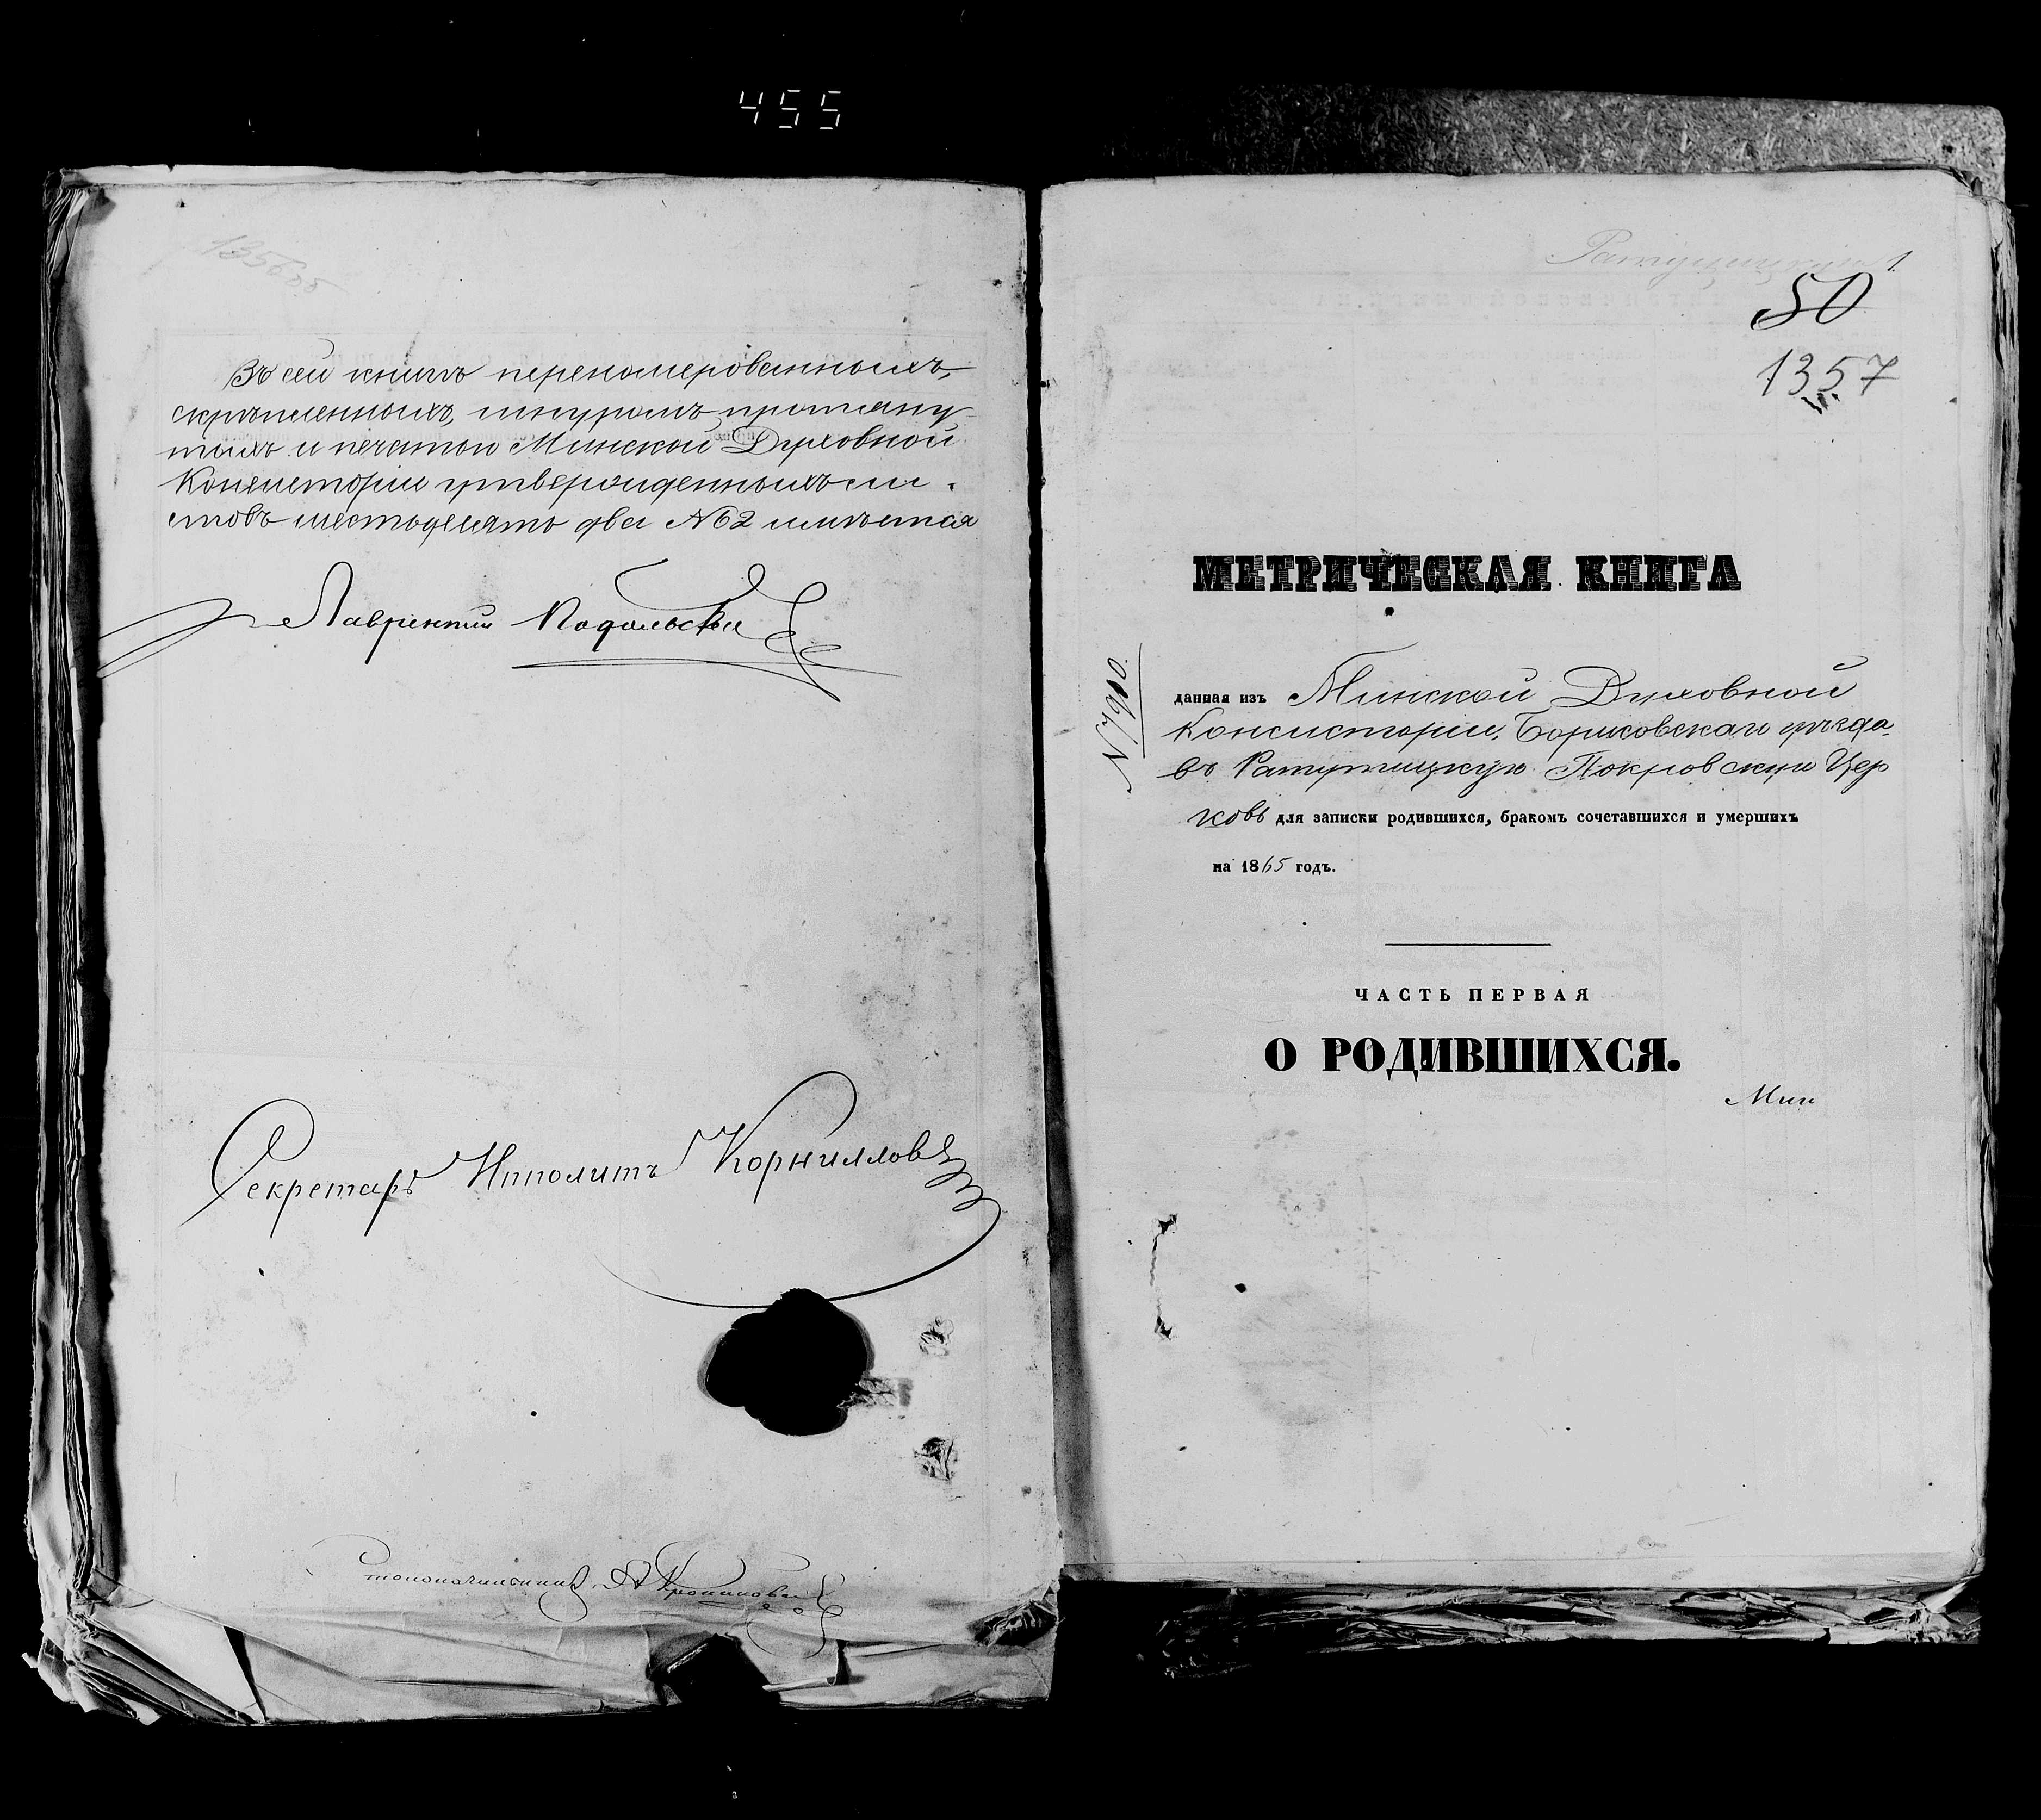 455
Въ сей книгѣ перенумерованныхъ,
скрѣпленныхъ, шнуромъ протяну-
тыхъ и печатью Минской Духовной
Консисторіи утвержденныхъ ли-
стовъ шестьдесятъ два №62 имѣется
Лаврентій Подольскій
Секретарь Ипполитъ Корнилловъ
Столоначальникъ А
50
1357
МЕТРИЧЕСКАЯ КНИГА
№ 7910.
данная изъ Минской Духовной
Консисторіи, Борисовскаго уѣзда
въ Ратутицкую Покровскую Цер
ковь для записки родившихся, бракомъ сочетавшихся и умершихъ
на 1865 годъ.
ЧАСТЬ ПЕРВАЯ
О РОДИВШИХСЯ.
Мин